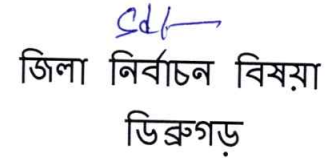 Sd/-
জিলা নিৰ্বাচন বিষয়া
ডিব্ৰুগড়